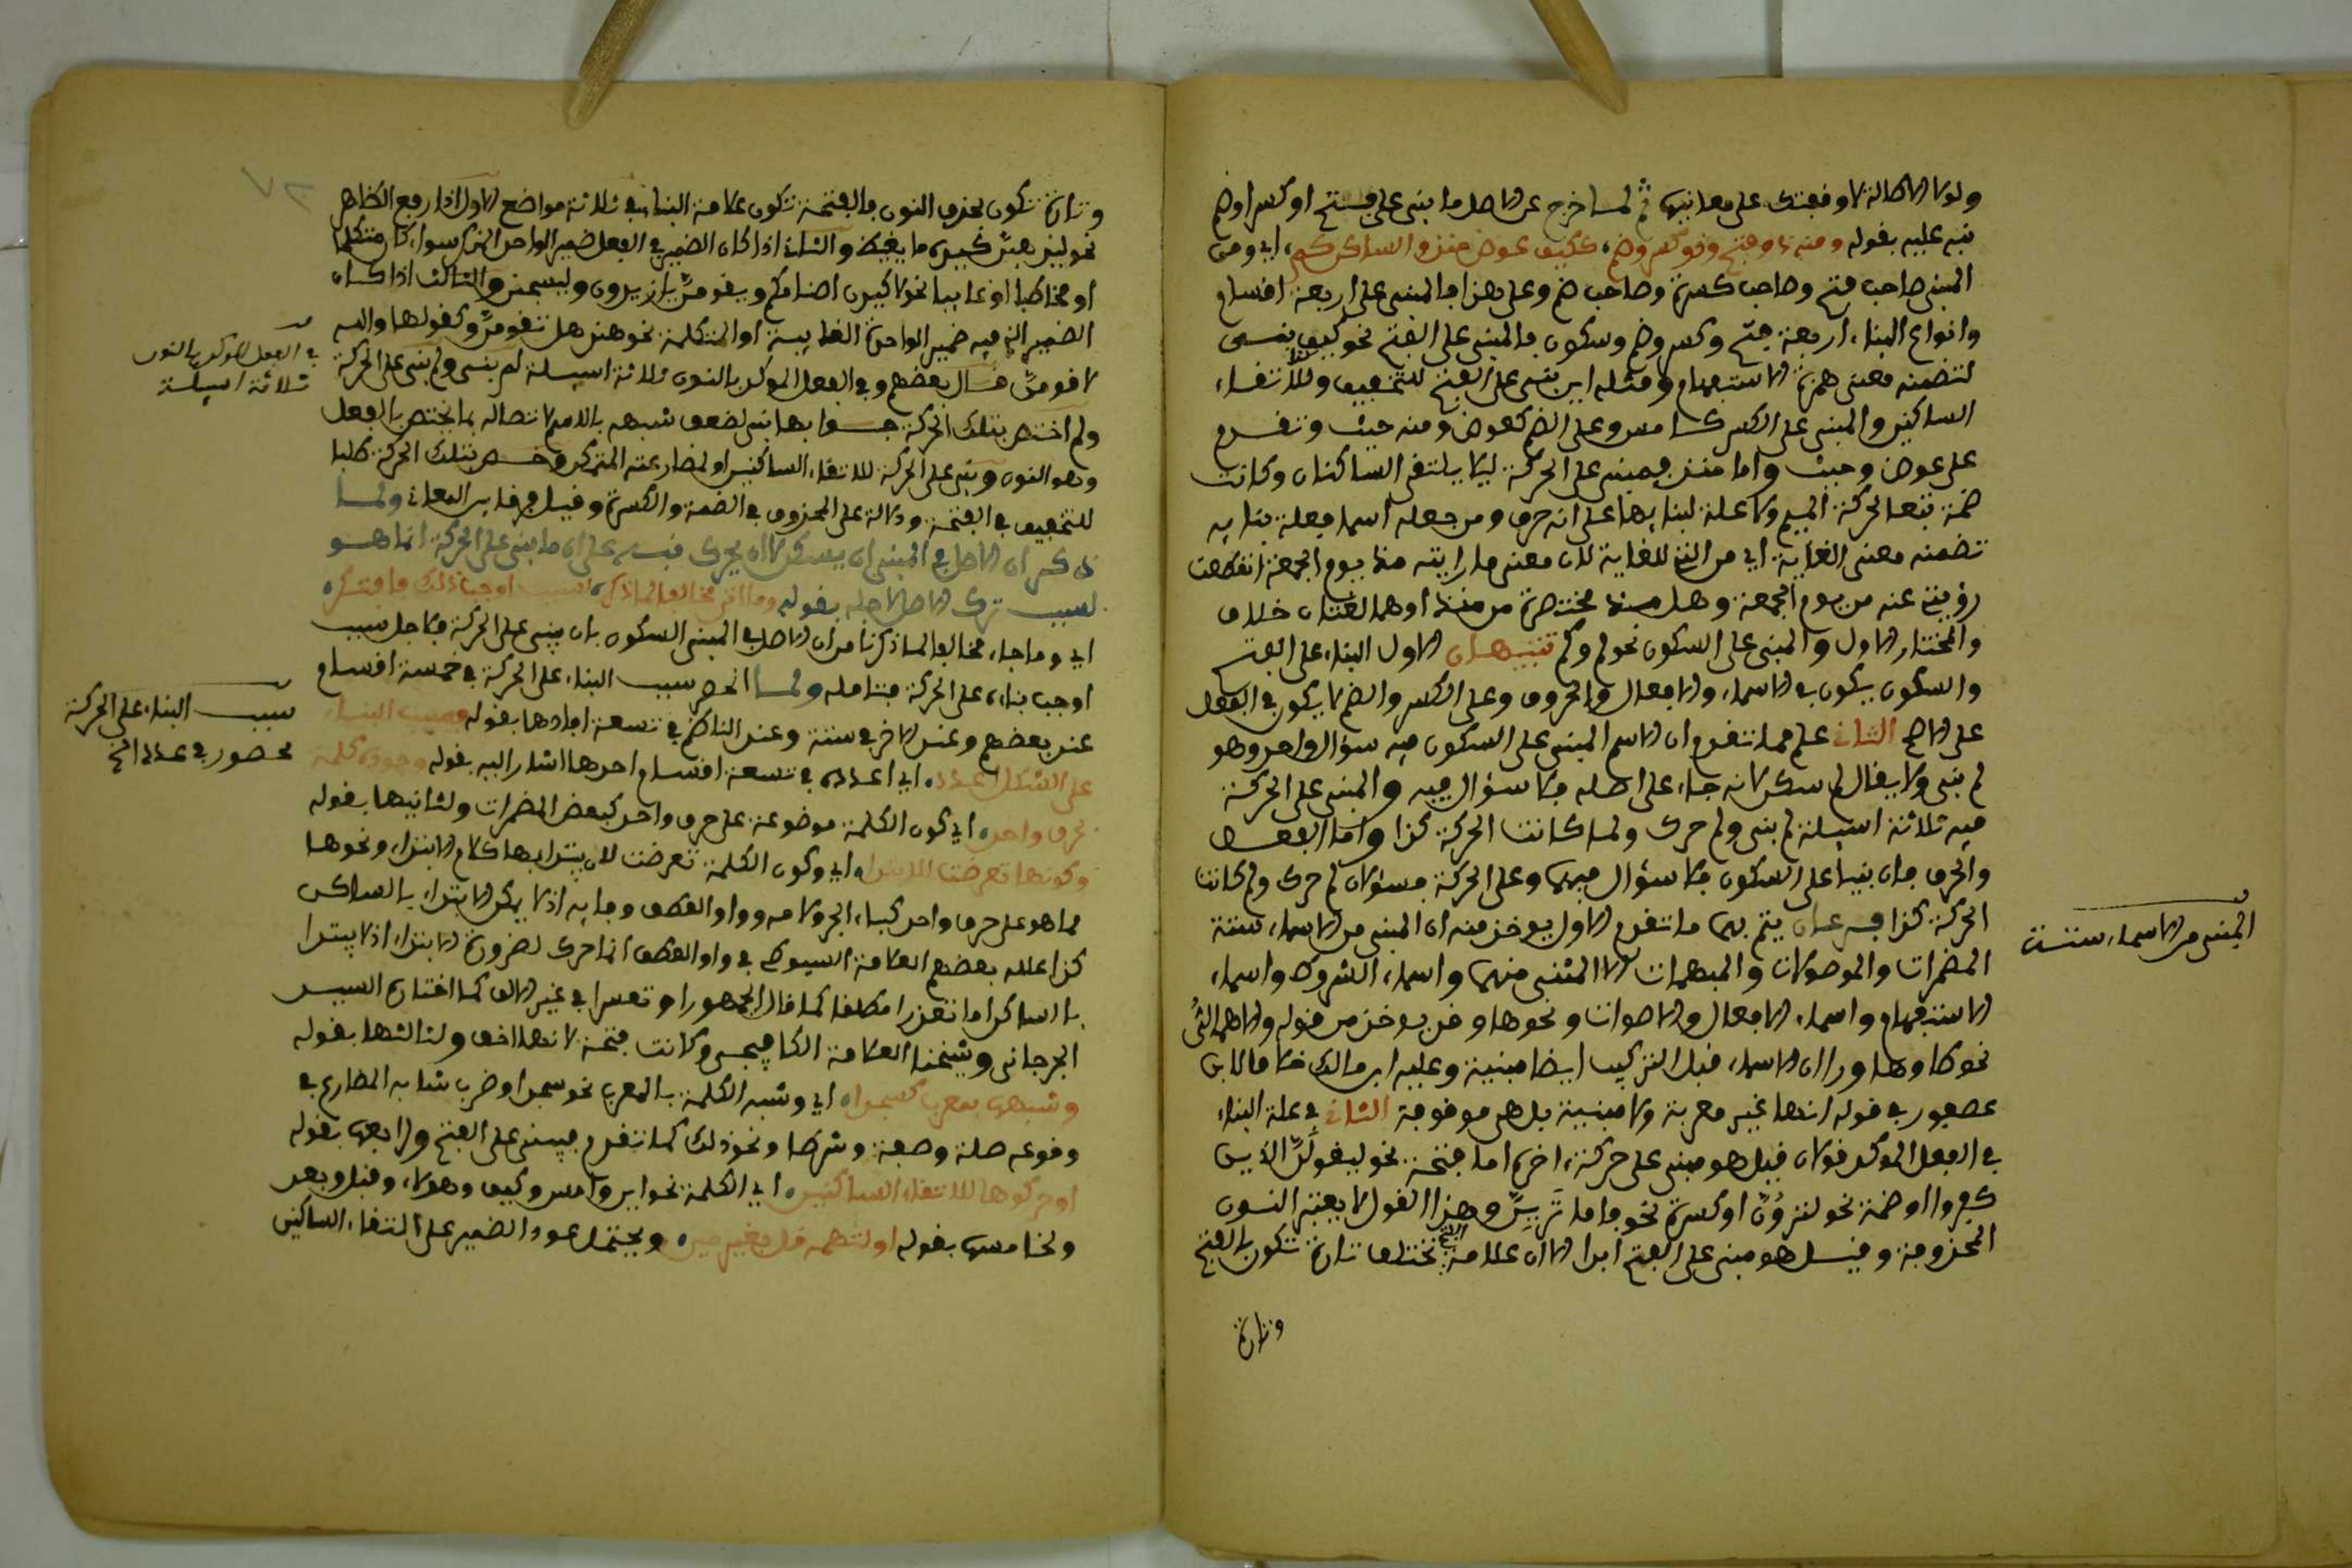 ولولا الاطالة لاوقفتك على معانيها ثم لما خرج عن الاصل ما بني على فتح او كسر او ضم
نبه عليه بقوله ومنه ذو فتح وذو كسر وضم، ككيف عوض منذ والساكن كم، اي ومن
المبني صاحب فتح وصاحب كسرة وصاحب ضم وعلى هذا فالمبني على اربعة اقسام
وانواع البناء اربعة فتح وكسر وضم وسكون فالمبني على الفتح نحو كيف بني
لتضمنه معنى همزة الاستفهام ومثله اين بني على الفتح للتخفيف وللالتقاء
الساكنين والمبني على الكسر كامس وعلى الضم كعوض ومنه حيث وتقدم
على عوض وحيث واما منذ فمبني على الحركة ليلا يلتقي الساكنان وكانت
ضمة تبعا لحركة الميم ولا علة لبنايها على انه حرف ومن جعله اسما فعلة بنايه
تضمنه معنى الغاية اي من التي للغاية لان معنى ما رايته منذ يوم الجمعة انقطعت
رؤيتي عنه من يوم الجمعة وهل مذ مختصرة من منذ او هما لغتان خلاف
والمختار الاول والمبني على السكون نحو لم وكم تنبيهان الاول البناء على الفتح
والسكون يكون في الاسماء والافعال والحروف وعلى الكسر والضم لا يكون في الفعل
على الاصح الثاني علم مما تقدم ان الاسم المبني على السكون فيه سؤال واحد وهو
لم بني ولا يقال لم سكن لانه جاء على اصله فلا سؤال فيه والمبني على الحركة
فيه ثلاثة اسيلة لم بني ولم حرك ولما كانت الحركة كذا واما الفعل
والحرف فان بنيا على السكون فلا سؤال فيهما وعلى الحركة فسؤالان لم حرك ولم كانت
الحركة كذا فرعان يتم بهما ما تقدم الاول يوخذ منه ان المبني من الاسماء ستة
المضمرات والموصولات والمبهمات الا المثنى منهما واسماء الشروط واسماء
الاستفهام واسماء الافعال والاصوات ونحوها وقد يوخذ من قوله والاهمال
نحو كاوها ورا ان الاسماء قبل التركيب ايضا مبنية وعليه ابن مالك خلافا لابن
عصفور في قوله انها غير معربة ولا مبنية بل هي موقوفة الثاني في علة البناء
في الفعل الموكد قولان قيل هو مبني على حركة، اخره اما فتحة نحو ليقولن الذين
كفروا او ضمة نحو لترون او كسرة نحو فاما ترين وهذا القول لا يعتبر النون
المحذوفة وقيل هو مبني على الفتح ابدا الا ان علامة الفتح تختلف تارة تكون بالفتح
وتارة
المبني من الاسماء ستة
وتارة تكون بحذف النون فالفتحة تكون علامة البناء في ثلاثة مواضع الاول اذا رفع الظاهر
نحو ليذهبن كيده ما يغيظ والثاني اذا كان الضمير في الفعل ضمير الواحد المذكر سواء كان متكلما
او مخاطبا او غايبا نحو لاكيدن اصنامكم ويقومن يا زيدون وليسجنن والثالث اذا كان
الضمير الذي فيه ضمير الواحدة الغايبة او المتكلمة نحو هند هل تقومن وكقولها والله
لاقومن قال بعضهم وفي الفعل الموكد بالنون ثلاثة اسيلة لم بني ولم بني على الحركة
ولم اختص بتلك الحركة جوابها بني لضعف شبهه بالاسم لاتصاله بما يختص بالفعل
وهو النون وبني على الحركة للالتقاء الساكنين او لمضارعته المتمكن وخص بتلك الحركة طلبا
للتخفيف في الفتحة ودلالة على المحذوف في الضمة والكسرة وقيل فرقا بين المعاني ولما
ذكر ان الاصل في المبني ان يسكن لا ان يحرك نبه على ان ما بني على الحركة انما هو
لسبب ترك الاصل لاجله بقوله وما اتى مخالفا لما ذكره لسبب اوجب ذلك فافتكره
اي وما جاء مخالفا لما ذكرنا من ان الاصل في المبني السكون بان بني على الحركة فلاجل سبب
اوجب بناءه على الحركة فتامله ولما انحصر سبب البناء على الحركة في خمسة اقسام
عند بعضهم وعند الاخر في ستة وعند الناظم في تسعة افادها بقوله وسبب البناء
على الشكل اعدده اي اعدده في تسعة اقسام احدها اشار اليه بقوله وجود كلمة
بحرف واحد اي كون الكلمة موضوعة على حرف واحد كبعض المضمرات ولثانيها بقوله
وكونها تعرضت للابتدا اي وكون الكلمة تعرضت لان يبتدا بها كلام الابتداء ونحوها
مما هو على حرف واحد كباء الجر ولامه وواو العطف وفايه اذ لا يمكن الابتداء بالساكن
كذا علله بعضهم العلامة السيوطي في واو العطف انما حرك لضرورة الابتداء اذ لا يبتدا
بالساكن اما تعذرا مطلقا كما قال الجمهور او تعسرا في غير الالف كما اختاره السيد
الجرجاني وشيخنا العلامة الكافيجي وكانت فتحة لانها اخف ولثالثها بقوله
وشبهها بمعرب كسجدا اي وشبه الكلمة بالمعرب نحو سجد او ضرب شابه المضارع في
وقوعه صلة وصفة وشرطا ونحو ذلك كما تقدم فبني على الفتح ولرابعها بقوله
او حركوها للالتقاء الساكنين اي الكلمة نحو اين وامس وكيف وهؤلاء وقبل وبعد
ولخامسها بقوله ويحتمل عود الضمير على التقاء الساكنين
في الفعل الموكد بالنون
ثلاثة اسيلة
سبب البناء على الحركة
محصور في عدد الخ